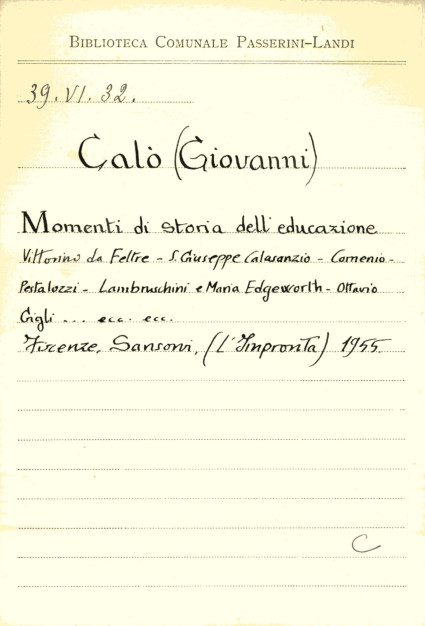 BIBLIOTECA COMUNALE PASSERINI-LANDI
39. VI. 32.
Calò (Giovanni)
Momenti di storia dell'educazione
Vittorino da Feltre - S. Giuseppe Calasanzio - Comenio -
Pestalozzi - Lambruschini e Maria Edgeworth - Ottavio
Gigli ... ecc. ecc.
Firenze, Sansoni, (L'Impronta) 1955.
C